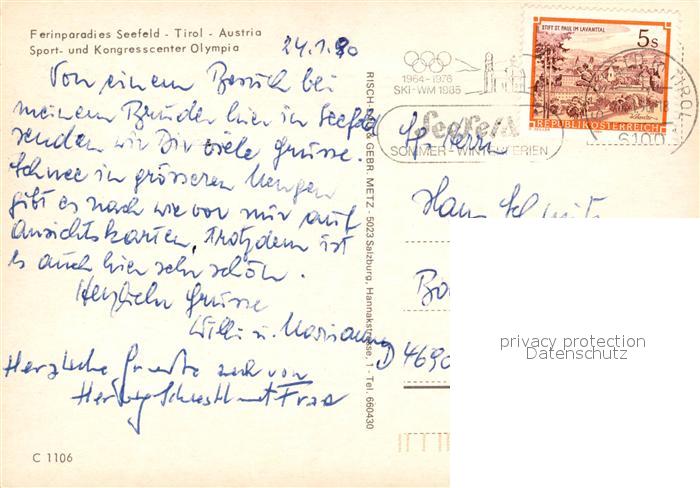 Ferinparadies Seefeld - Tirol - Austria
Sport- und Kongresscenter Olympia
24.1.90
Von einem Besuch bei
meinem Bruder hier in Seefeld
senden wir Dir viele Grüsse.
Schnee in grösseren Mengen
gibt es nach wie vor nur auf
Ansichtskarten, trotzdem ist
es auch hier sehr schön.
Herzliche Grüsse
Willi u. Marianne
Herzliche Grüsse auch von
Herwig mit Frau
C 1106
RISCH-LAU & GEBR. METZ - 5023 Salzburg, Hannakstrasse, 1 - Tel. 660430
STIFT ST. PAUL IM LAVANTTAL
5 S
REPUBLIK ÖSTERREICH
1964-1976
SKI-WM 1985
Seefeld
SOMMER - WINTERFERIEN
6100
Herrn
Hans
D 4690
privacy protection
Datenschutz